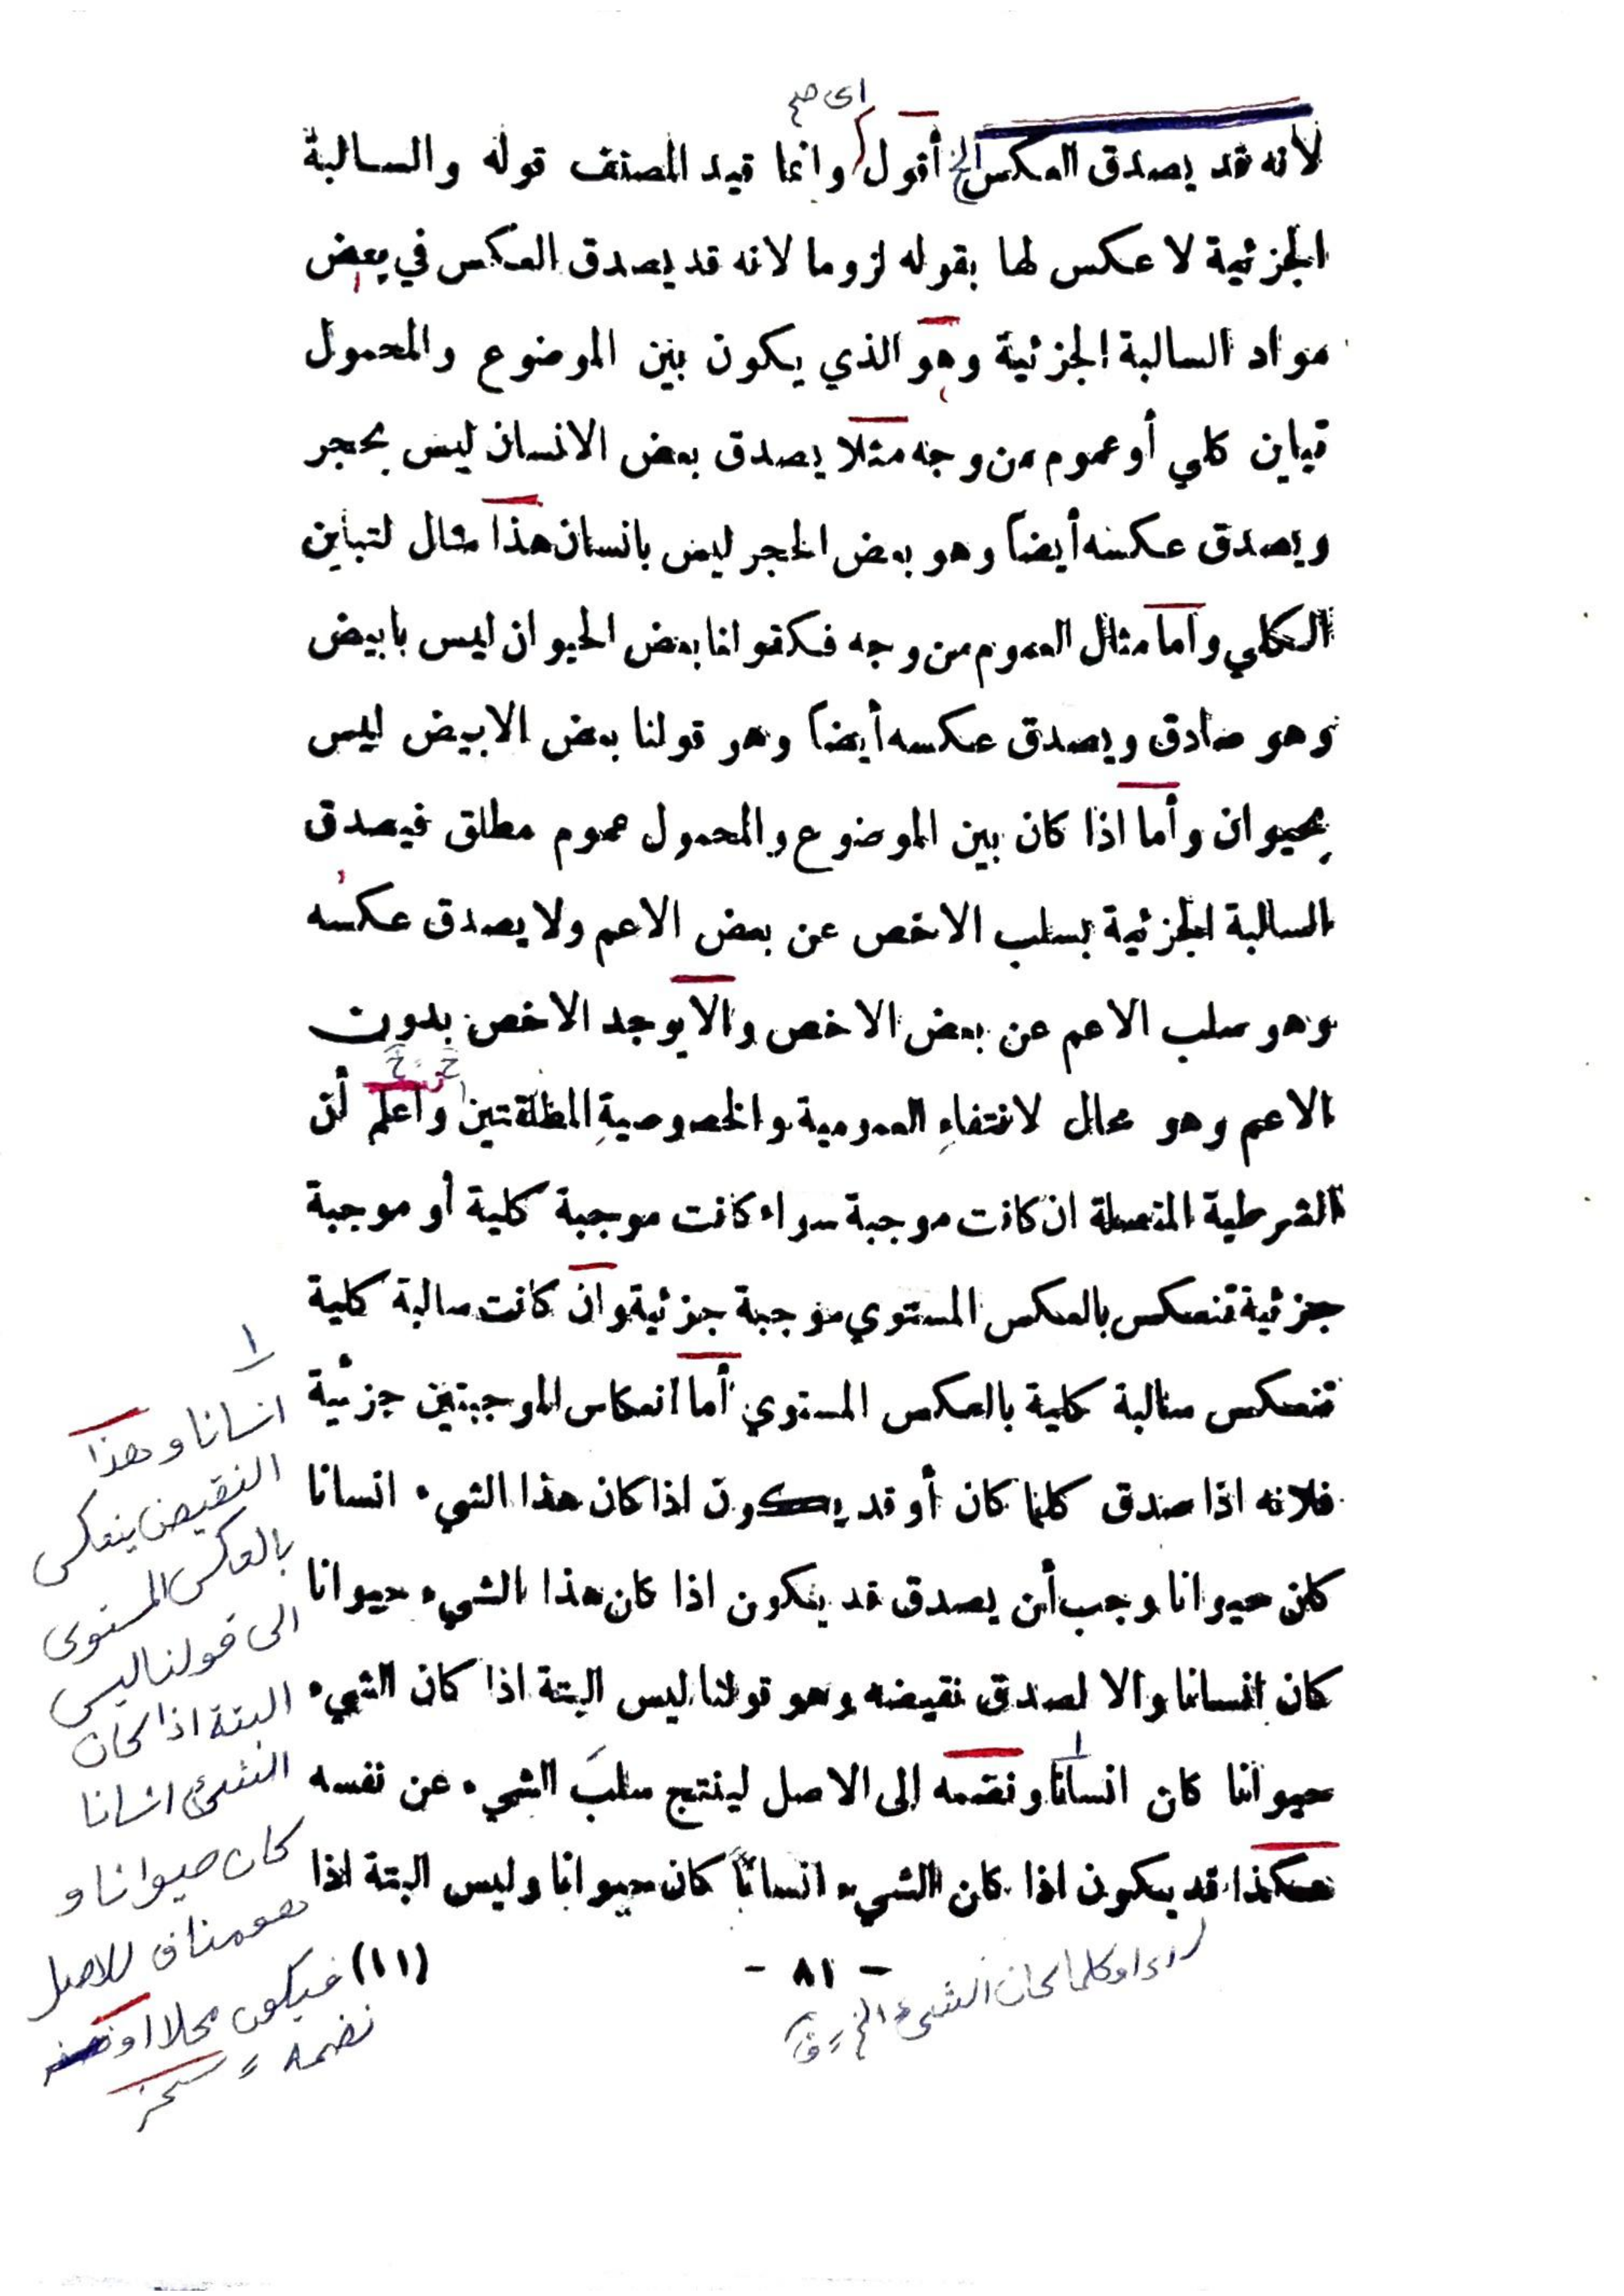 اى صح
لانه قد يصدق العكس الخ أقول وانما قيد المصنف قوله والسالبة
الجزئية لا عكس لها بقوله لزوما لانه قد يصدق العكس في بعض
مواد السالبة الجزئية وهو الذي يكون بين الموضوع والمحمول
تباين كلي أو عموم من وجه مثلا يصدق بعض الانسان ليس بحجر
ويصدق عكسه أيضاً وهو بعض الحجر ليس بانسان هذا مثال لتباين
الكلي وأما مثال العموم من وجه فكقولنا بعض الحيوان ليس بابيض
وهو صادق ويصدق عكسه أيضاً وهو قولنا بعض الابيض ليس
بحيوان وأما اذا كان بين الموضوع والمحمول عموم مطلق فيصدق
السالبة الجزئية بسلب الاخص عن بعض الاعم ولا يصدق عكسه
وهو سلب الاعم عن بعض الاخص والا يوجد الاخص بدون
الاعم وهو محال لانتفاءِ العمومية والخصوصيةِ المطلقتين واعلم أن
الشرطية المتصلة ان كانت موجبة سواء كانت موجبة كلية أو موجبة
جزئية تنعكس بالعكس المستوي موجبة جزئية وان كانت سالبة كلية
تنعكس سالبة كلية بالعكس المستوي أما انعكاس الموجبتين جزئية
فلانه اذا صدق كلما كان أو قد يكون اذا كان هذا الشيء انسانا
كان حيوانا وجب أن يصدق قد يكون اذا كان هذا الشيء حيوانا
كان انسانا والا لصدق نقيضه وهو قولنا ليس البتة اذا كان الشيء
حيوانا كان انسانا ونضمه الى الاصل لينتج سلبَ الشيء عن نفسه
هكذا قد يكون اذا كان الشيء انساناً كان حيوانا وليس البتة اذا
- ٨١ -
(١١)
اوكلما كان الشئ الخ
١
انسانا وهذا
النقيض ينعكس
بالعكس المستوى
الى قولنا ليس
البتة اذا كان
الشئ انسانا
كان حيوانا و
هو مناف للاصل
فيكون محلا او
نضمه